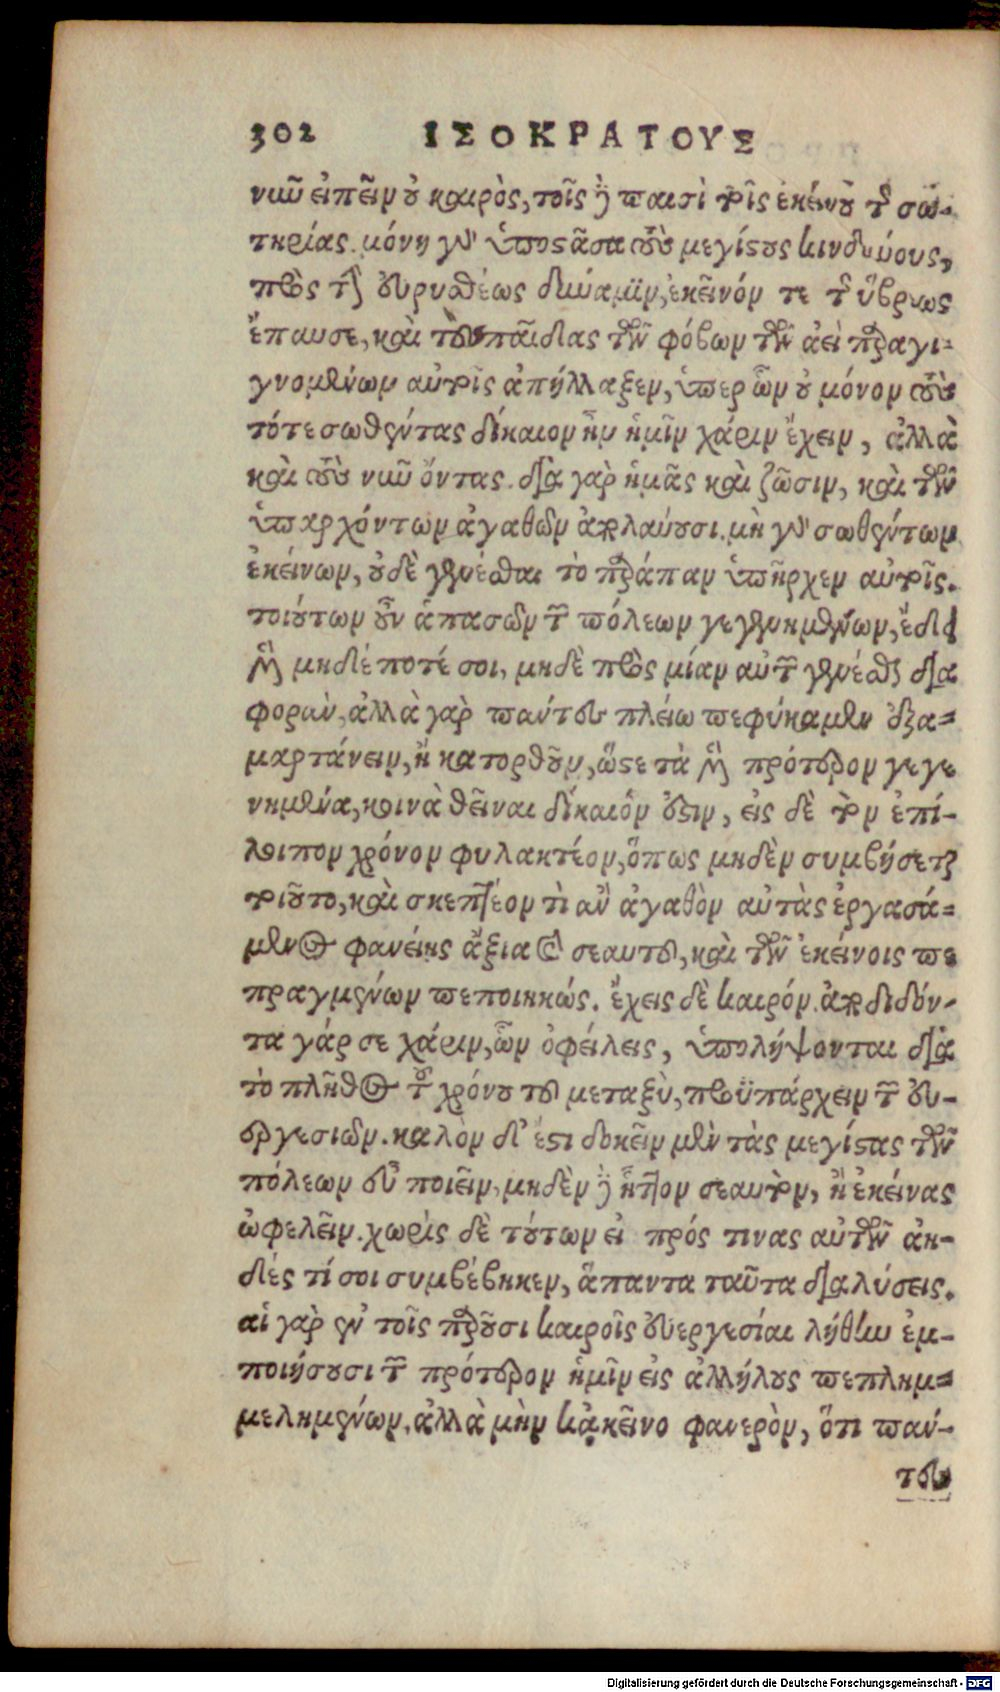 302 ΙΣΟΚΡΑΤΟΥΣ
νῦν εἰπεῖν ὁ καιρὸς, τοῖς δὲ παισὶ τοῖς ἐκείνου τῆς σω-
τηρίας. μόνη γὰρ ὑποστᾶσα τοὺς μεγίστους κινδύνους,
πρὸς τὴν Εὐρυσθέως δύναμιν, ἐκεῖνόν τε τῆς ὕβρεως
ἔπαυσε, καὶ τοὺς παῖδας τῶν φόβων τῶν ἀεὶ παραγι-
γνομένων αὐτοῖς ἀπήλλαξεν, ὑπερ ὧν οὐ μόνον τοὺς
τότε σωθέντας δίκαιον ἦν ἡμῖν χάριν ἔχειν, ἀλλὰ
καὶ τοὺς νῦν ὄντας. διὰ γὰρ ἡμᾶς καὶ ζῶσιν, καὶ τῶν
ὑπαρχόντων ἀγαθῶν ἀπολαύουσι. μὴ γὰρ σωθέντων
ἐκείνων, οὐδὲ γενέσθαι τὸ παράπαν ὑπῆρχεν αὐτοῖς.
τοιούτων οὖν ἁπασῶν τῶν πόλεων γεγενημένων, ἔδει
μὲν μηδέποτέ σοι, μηδὲ πρὸς μίαν αὐτῶν γενέσθαι δια
φορὰν, ἀλλὰ γὰρ πάντες πλείω πεφύκαμεν ἐξα-
μαρτάνειν, ἢ κατορθοῦν, ὥστε τὰ μὲν πρότερον γεγε
νημένα, κοινὰ θεῖναι δίκαιόν ἐστιν, εἰς δὲ τὸν ἐπί-
λοιπον χρόνον φυλακτέον, ὅπως μηδὲν συμβήσεται
τοιοῦτο, καὶ σκεπτέον τὶ ἂν ἀγαθὸν αὐτὰς ἐργασά-
μενος φανείης ἄξια καὶ σεαυτοῦ, καὶ τῶν ἐκείνοις πε
πραγμένων πεποιηκώς. ἔχεις δὲ καιρόν. ἀποδιδόν-
τα γάρ σε χάριν, ὧν ὀφείλεις, ὑπολήψονται διὰ
τὸ πλῆθος τοῦ χρόνου τοῦ μεταξὺ, προϋπάρχειν τῶν εὐ-
εργεσιῶν. καλὸν δ' ἐστι δοκεῖν μὲν τὰς μεγίστας τῶν
πόλεων εὖ ποιεῖν, μηδὲν δὲ ἧττον σεαυτὸν, ἢ ἐκείνας
ὠφελεῖν. χωρὶς δὲ τούτων εἰ πρός τινας αὐτῶν ἀη-
δές τί σοι συμβέβηκεν, ἅπαντα ταῦτα διαλύσεις.
αἱ γὰρ ἐν τοῖς παροῦσι καιροῖς εὐεργεσίαι λήθην ἐμ-
ποιήσουσι τῶν πρότερον ἡμῖν εἰς ἀλλήλους πεπλημ-
μελημένων, ἀλλὰ μὴν κἀκεῖνο φανερὸν, ὅτι πάν-
τες
Digitalisierung gefördert durch die Deutsche Forschungsgemeinschaft - DFG